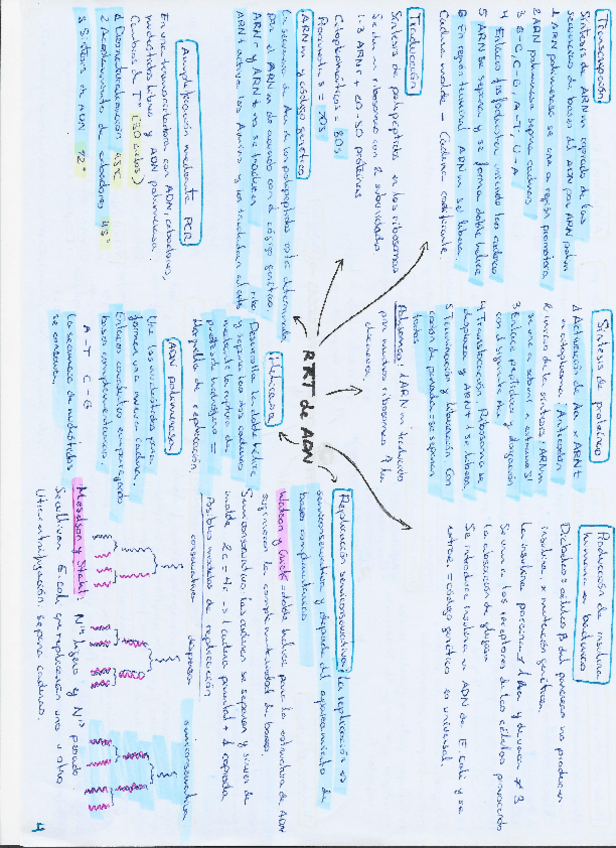 Transcripción
Síntesis de ARNm copiado de las
secuencias de bases del ADN por ARN polim
1 ARN polimerasa se une a región promotora
2 ARN polimerasa separa cadenas
3 G-C, C-G, A-T, U-A
4 Enlace fosfodiester uniendo las cadenas
5 ARN se separa y se forma doble hélice
6 En región terminal ARNm se libera
Cadena molde - Cadena codificante
Traducción
Síntesis de polipéptidos en los ribosomas
Se da en ribosomas con 2 subunidades
1-3 ARNr + 20-80 proteínas
Citoplasmáticos = 80s
Procariotas = 70s
ARNm y código genético
La secuencia de Aa de los polipéptidos está determinada
por el ARNm de acuerdo con el código genético.
ARNr y ARNt no se traducen
ARNt activa los Aminos y los trasladan al sitio ribo
Amplificación mediante PCR
En una transcribadora con ADN, cebadores,
nucleótidos libres y ADN polimerasa.
Cambios de Tª (30 ciclos)
1 Desnaturalización 95ºC
2 Acoplamiento de cebadores 45º
3 Síntesis de ADN 72º
Síntesis de proteínas
1 Activación de Aa: ARNt
Anticodón
2 Inicio de la síntesis: ARNm
se une a subuni a extremo 5'
3 Enlace peptídico y elongación
con el siguiente Aa
4 Translocación: Ribosoma se
desplaza y ARNt se libera
5 Terminación y liberación Con
codón de parada se separan
todos
Polisomas: 1 ARNm traducido
por muchos ribosomas a la
RRT de ADN
Helicasa
Desenrolla la doble hélice
y separa las dos cadenas
mediante la ruptura de
puentes de hidrógeno =
Horquilla de replicación
ADN polimerasa
Une los nucleótidos para
formar una nueva cadena.
Enlaces covalentes emparejando
bases complementarias.
A-T C-G
La secuencia de nucleótidos
se conserva.
Producción de insulina
humana en bacterias
Diabetes: células β del páncreas no producen
insulina, x mutación genética.
La insulina
Se une a los receptores de las células provocando
la absorción de glucosa
Se introduce insulina en ADN de E. coli y se
extrae = código genético es universal.
Replicación semiconservativa: La replicación es
semiconservativa y depende del apareamiento de
bases complementarias
Watson y Crick = doble hélice para la estructura de ADN
sugirieron la complementariedad de bases.
Semiconservativa: las cadenas se separan y sirven de
molde 2c = 4c -> 1 cadena parental + 1 copiada
Posibles modelos de replicación
conservativa dispersa semiconservativa
Meselson y Stahl: N14 ligero y N15 pesado
Se cultivan E. coli, que replicarán uno u otro
Ultracentrifugación separa cadenas.
4